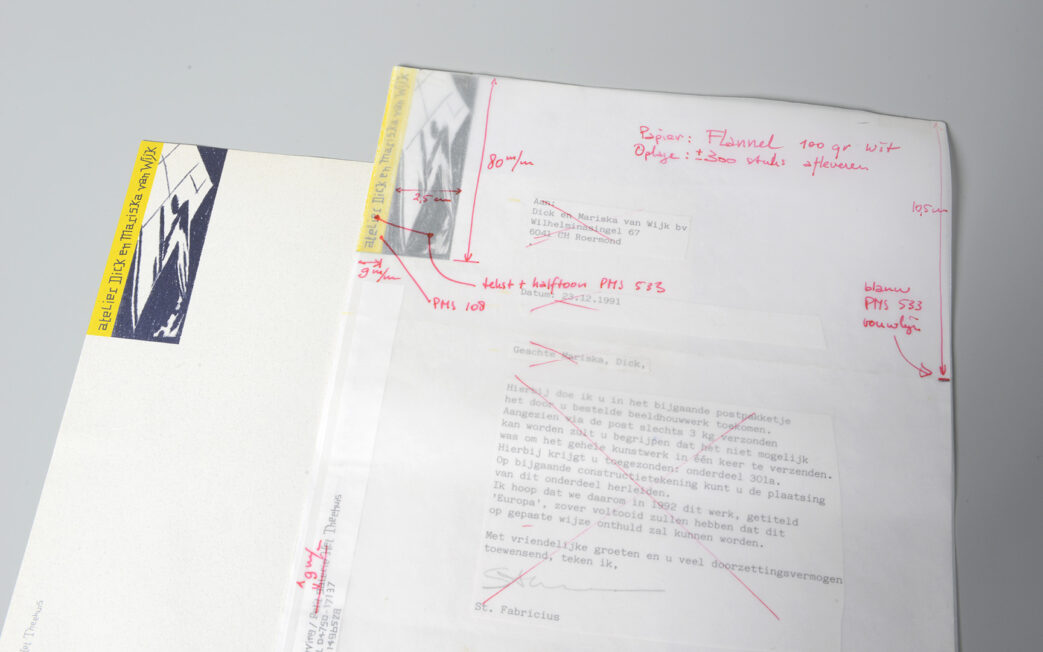 atelier Dick en Mariska van Wijk
atelier Dick en Mariska van Wijk
80 m/m
2,5 cm
9 m/m
tekst + halftoon PMS 533
PMS 108
Papier: Flannel 100 gr wit
Oplage: ± 300 stuks afleveren
10,5 cm
blauw
PMS 533
vouwlijn
Aan:
Dick en Mariska van Wijk bv
Wilhelminasingel 67
6041 CH Roermond
Datum: 23.12.1991
Geachte Mariska, Dick,
Hierbij doe ik u in het bijgaande postpakketje
het door u bestelde beeldhouwwerk toekomen.
Aangezien via de post slechts 3 kg verzonden
kan worden zult u begrijpen dat het niet mogelijk
was om het gehele kunstwerk in één keer te verzenden.
Hierbij krijgt u toegezonden: onderdeel 301a.
Op bijgaande constructietekening kunt u de plaatsing
van dit onderdeel herleiden.
Ik hoop dat we daarom in 1992 dit werk, getiteld
'Europa', zover voltooid zullen hebben dat dit
op gepaste wijze onthuld zal kunnen worden.
Met vriendelijke groeten en u veel doorzettingsvermogen
toewensend, teken ik,
St. Fabricius
9 m/m
Theehuis
04750-17137
Theehuis